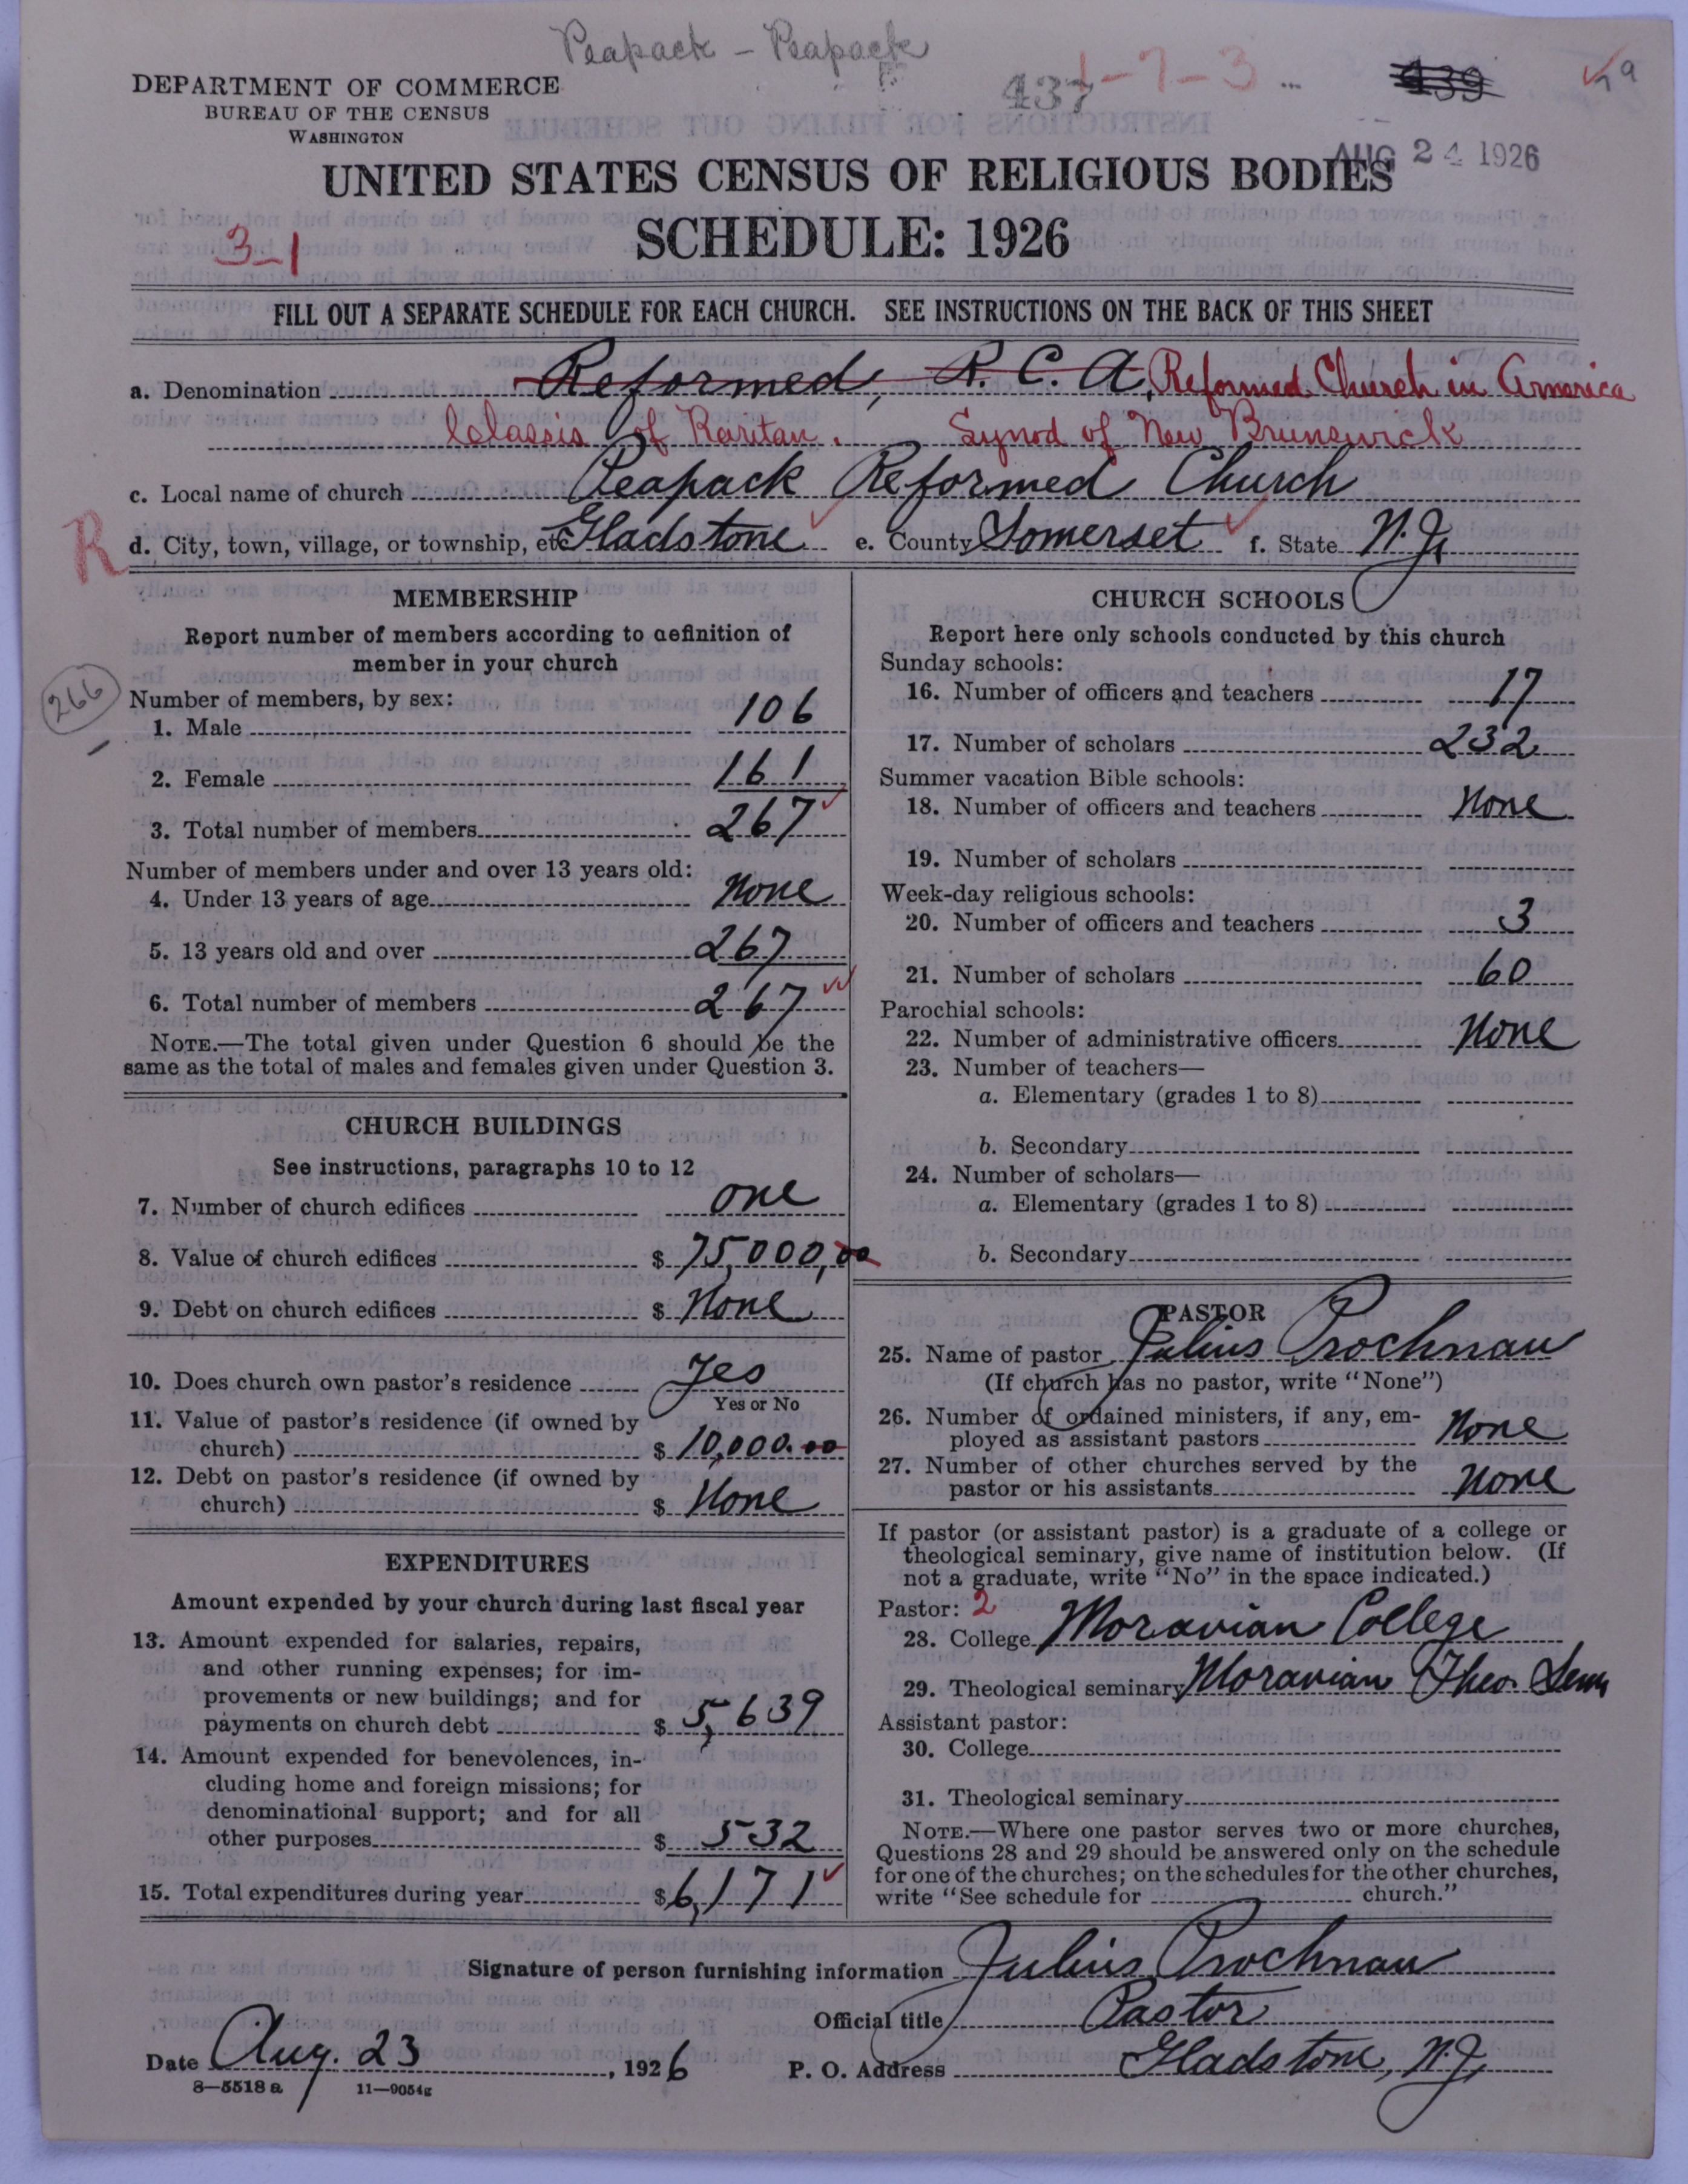 Peapack - Peapack
DEPARTMENT OF COMMERCE
BUREAU OF THE CENSUS
WASHINGTON
437 1-7-3
439
AUG 24 1926
UNITED STATES CENSUS OF RELIGIOUS BODIES
SCHEDULE: 1926
3-1
FILL OUT A SEPARATE SCHEDULE FOR EACH CHURCH. SEE INSTRUCTIONS ON THE BACK OF THIS SHEET
a. Denomination Reformed, R. C. A. Reformed Church in America
Classis of Raritan. Synod of New Brunswick
c. Local name of church Peapack Reformed Church
R
d. City, town, village, or township, etc Gladstone e. County Somerset f. State N.J.
MEMBERSHIP
Report number of members according to definition of
member in your church
266
Number of members, by sex:
1. Male 106
2. Female 161
3. Total number of members 267
Number of members under and over 13 years old:
4. Under 13 years of age None
5. 13 years old and over 267
6. Total number of members 267
NOTE.—The total given under Question 6 should be the
same as the total of males and females given under Question 3.
CHURCH BUILDINGS
See instructions, paragraphs 10 to 12
7. Number of church edifices one
8. Value of church edifices $ 75,000,00
9. Debt on church edifices $ None
10. Does church own pastor's residence Yes
Yes or No
11. Value of pastor's residence (if owned by
church) $ 10,000.00
12. Debt on pastor's residence (if owned by
church) $ None
EXPENDITURES
Amount expended by your church during last fiscal year
13. Amount expended for salaries, repairs,
and other running expenses; for im-
provements or new buildings; and for
payments on church debt $ 5,639
14. Amount expended for benevolences, in-
cluding home and foreign missions; for
denominational support; and for all
other purposes $ 532
15. Total expenditures during year $ 6,171
CHURCH SCHOOLS
Report here only schools conducted by this church
Sunday schools:
16. Number of officers and teachers 17
17. Number of scholars 232
Summer vacation Bible schools:
18. Number of officers and teachers None
19. Number of scholars
Week-day religious schools:
20. Number of officers and teachers 3
21. Number of scholars 60
Parochial schools:
22. Number of administrative officers None
23. Number of teachers—
a. Elementary (grades 1 to 8)
b. Secondary
24. Number of scholars—
a. Elementary (grades 1 to 8)
b. Secondary
PASTOR
25. Name of pastor Julius Prochnau
(If church has no pastor, write "None")
26. Number of ordained ministers, if any, em-
ployed as assistant pastors None
27. Number of other churches served by the
pastor or his assistants None
If pastor (or assistant pastor) is a graduate of a college or
theological seminary, give name of institution below. (If
not a graduate, write "No" in the space indicated.)
Pastor: 2
28. College Moravian College
29. Theological seminary Moravian Theo. Sem
Assistant pastor:
30. College
31. Theological seminary
NOTE.—Where one pastor serves two or more churches,
Questions 28 and 29 should be answered only on the schedule
for one of the churches; on the schedules for the other churches,
write "See schedule for church."
Signature of person furnishing information Julius Prochnau
Official title Pastor
Date Aug. 23, 1926 P. O. Address Gladstone, N.J.
8—5518 a 11—9054g